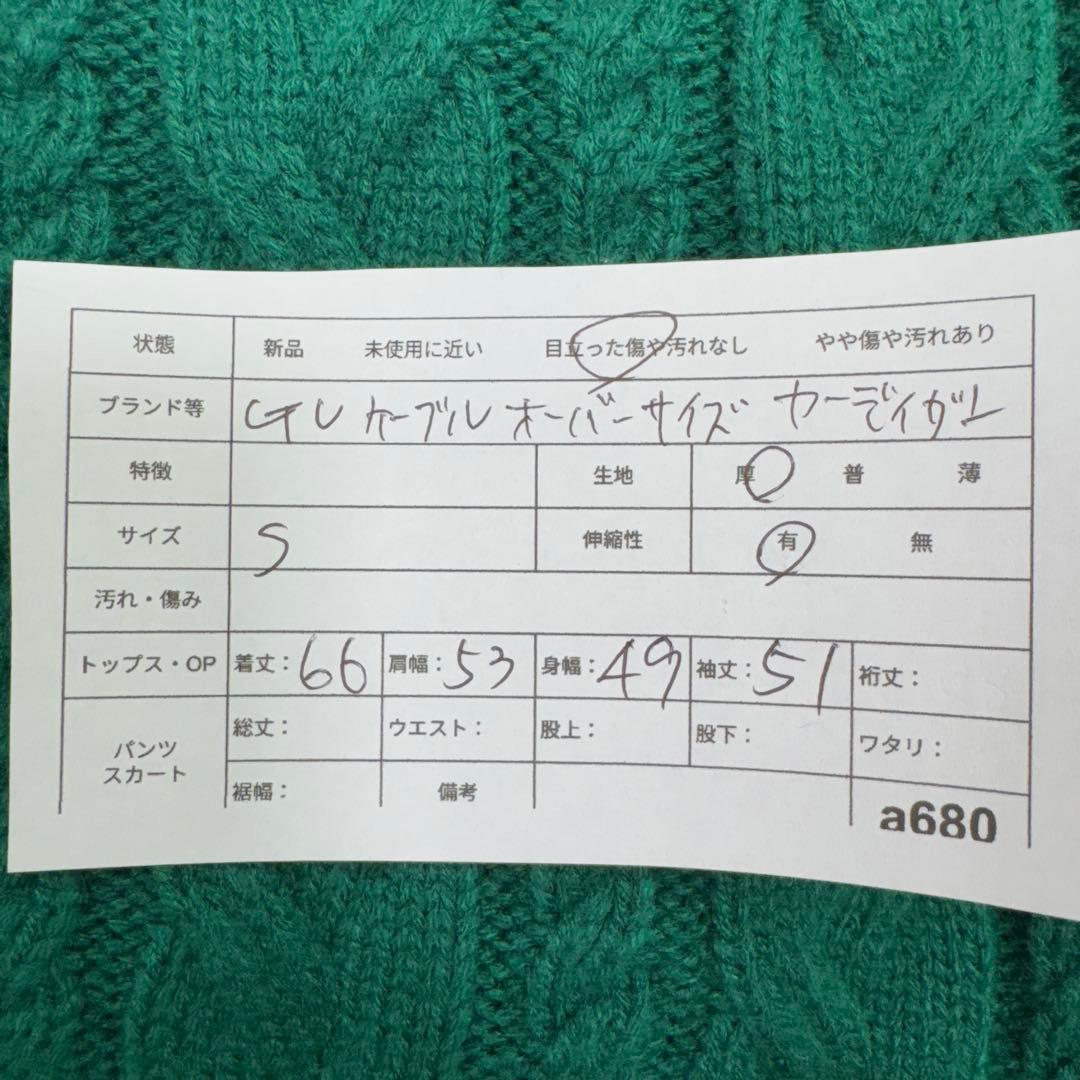 状態 新品 未使用に近い 目立った傷や汚れなし やや傷や汚れあり
ブランド等 GU ケーブル オーバーサイズ カーディガン
特徴 生地 厚 普 薄
サイズ S 伸縮性 有 無
汚れ・傷み
トップス・OP 着丈：66 肩幅：53 身幅：49 袖丈：51 裄丈：
パンツ 総丈： ウエスト： 股上： 股下： ワタリ：
スカート 裾幅： 備考
a680